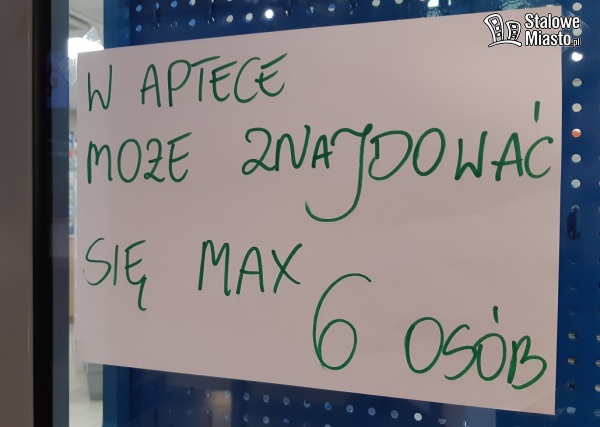 Stalowe
Miasto.pl
W APTECE
MOŻE ZNAJDOWAĆ
SIĘ MAX
6 OSÓB